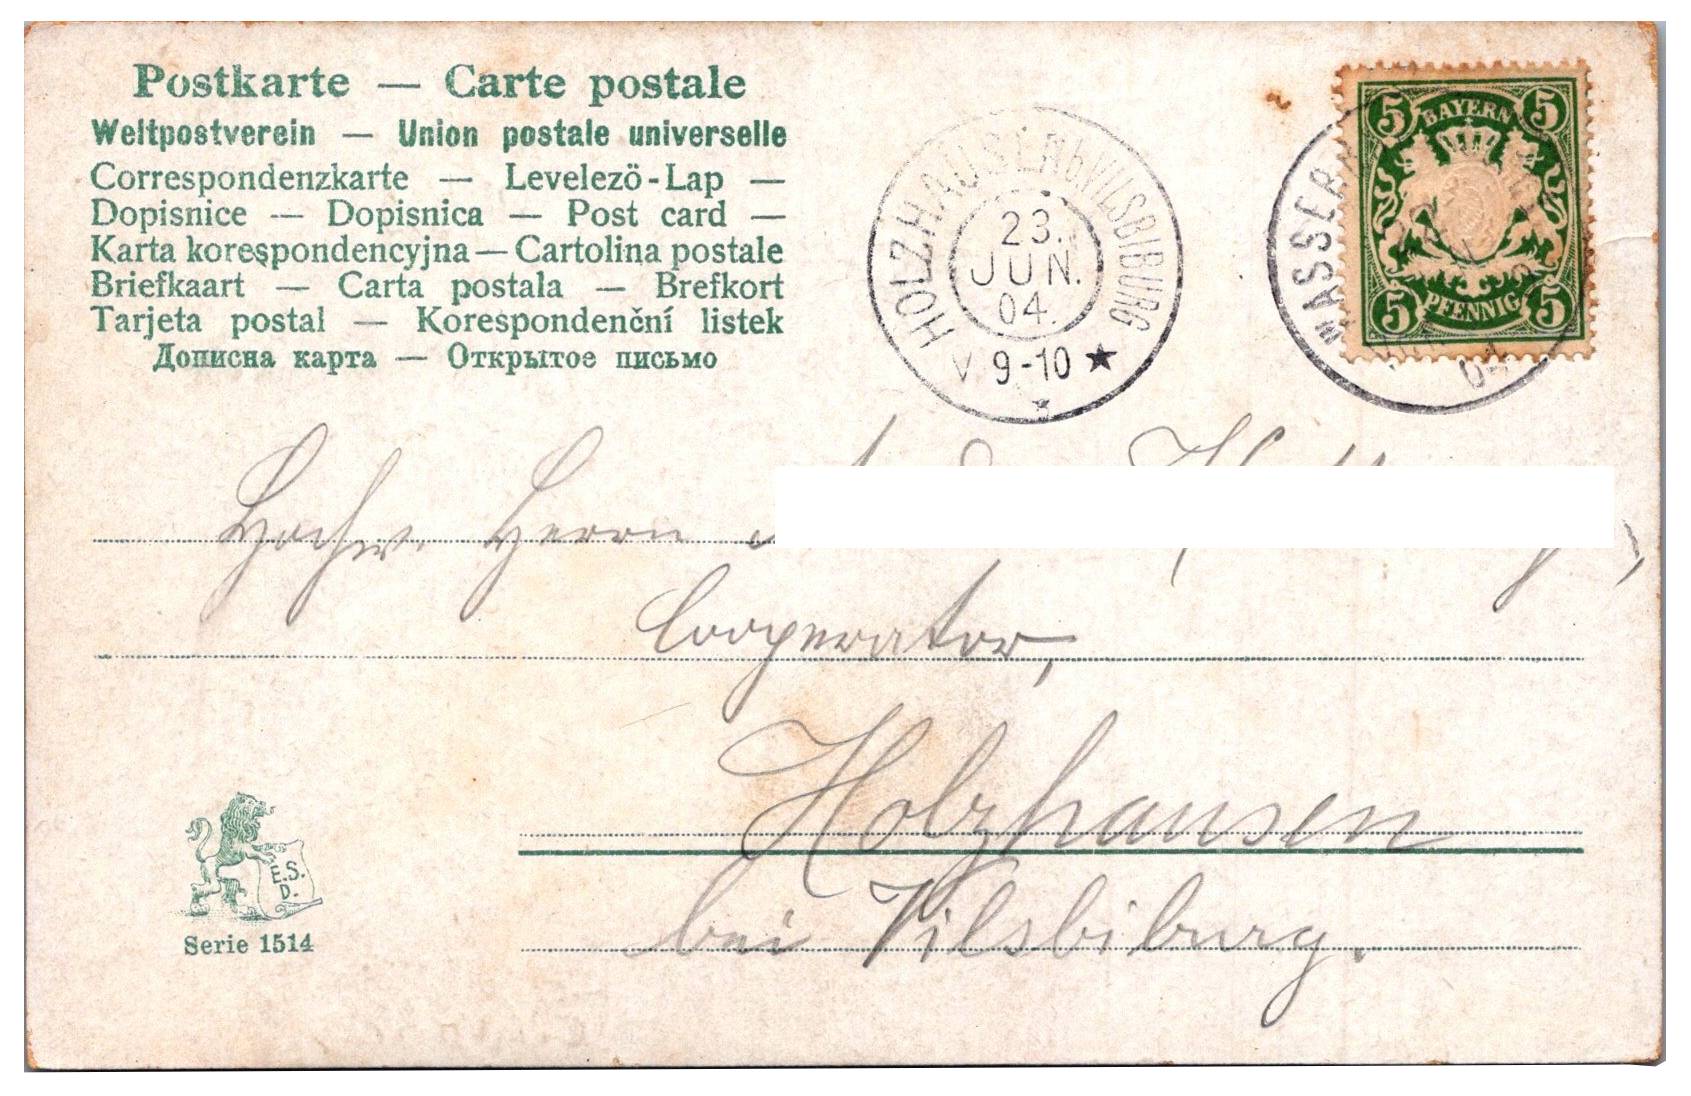 Postkarte — Carte postale
Weltpostverein — Union postale universelle
Correspondenzkarte — Levelezö-Lap —
Dopisnice — Dopisnica — Post card —
Karta korespondencyjna — Cartolina postale
Briefkaart — Carta postala — Brefkort
Tarjeta postal — Korespondenční listek
Дописна карта — Открытое письмо
HOLZHAUSEN b VILSBIBURG
23.
JUN.
04.
V 9-10 ★
5 BAYERN 5
5 PFENNIG 5
WASSERB
04
Hochw. Herrn
Cooperator,
Holzhausen
bei Vilsbiburg.
E.S.
D.
Serie 1514